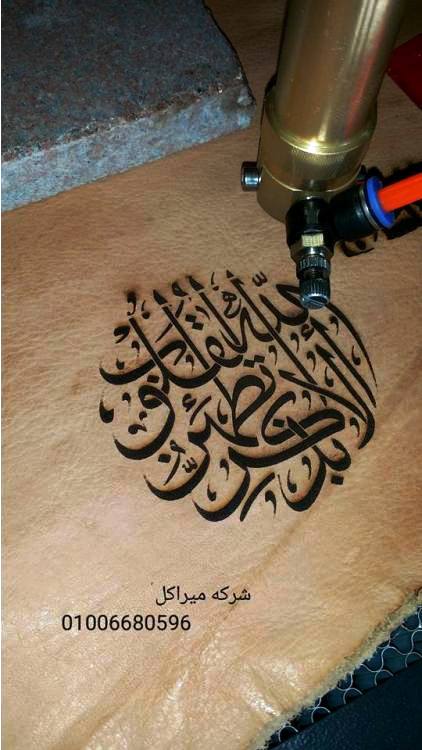 ألا بذكر الله تطمئن القلوب
شركه ميراكل
01006680596